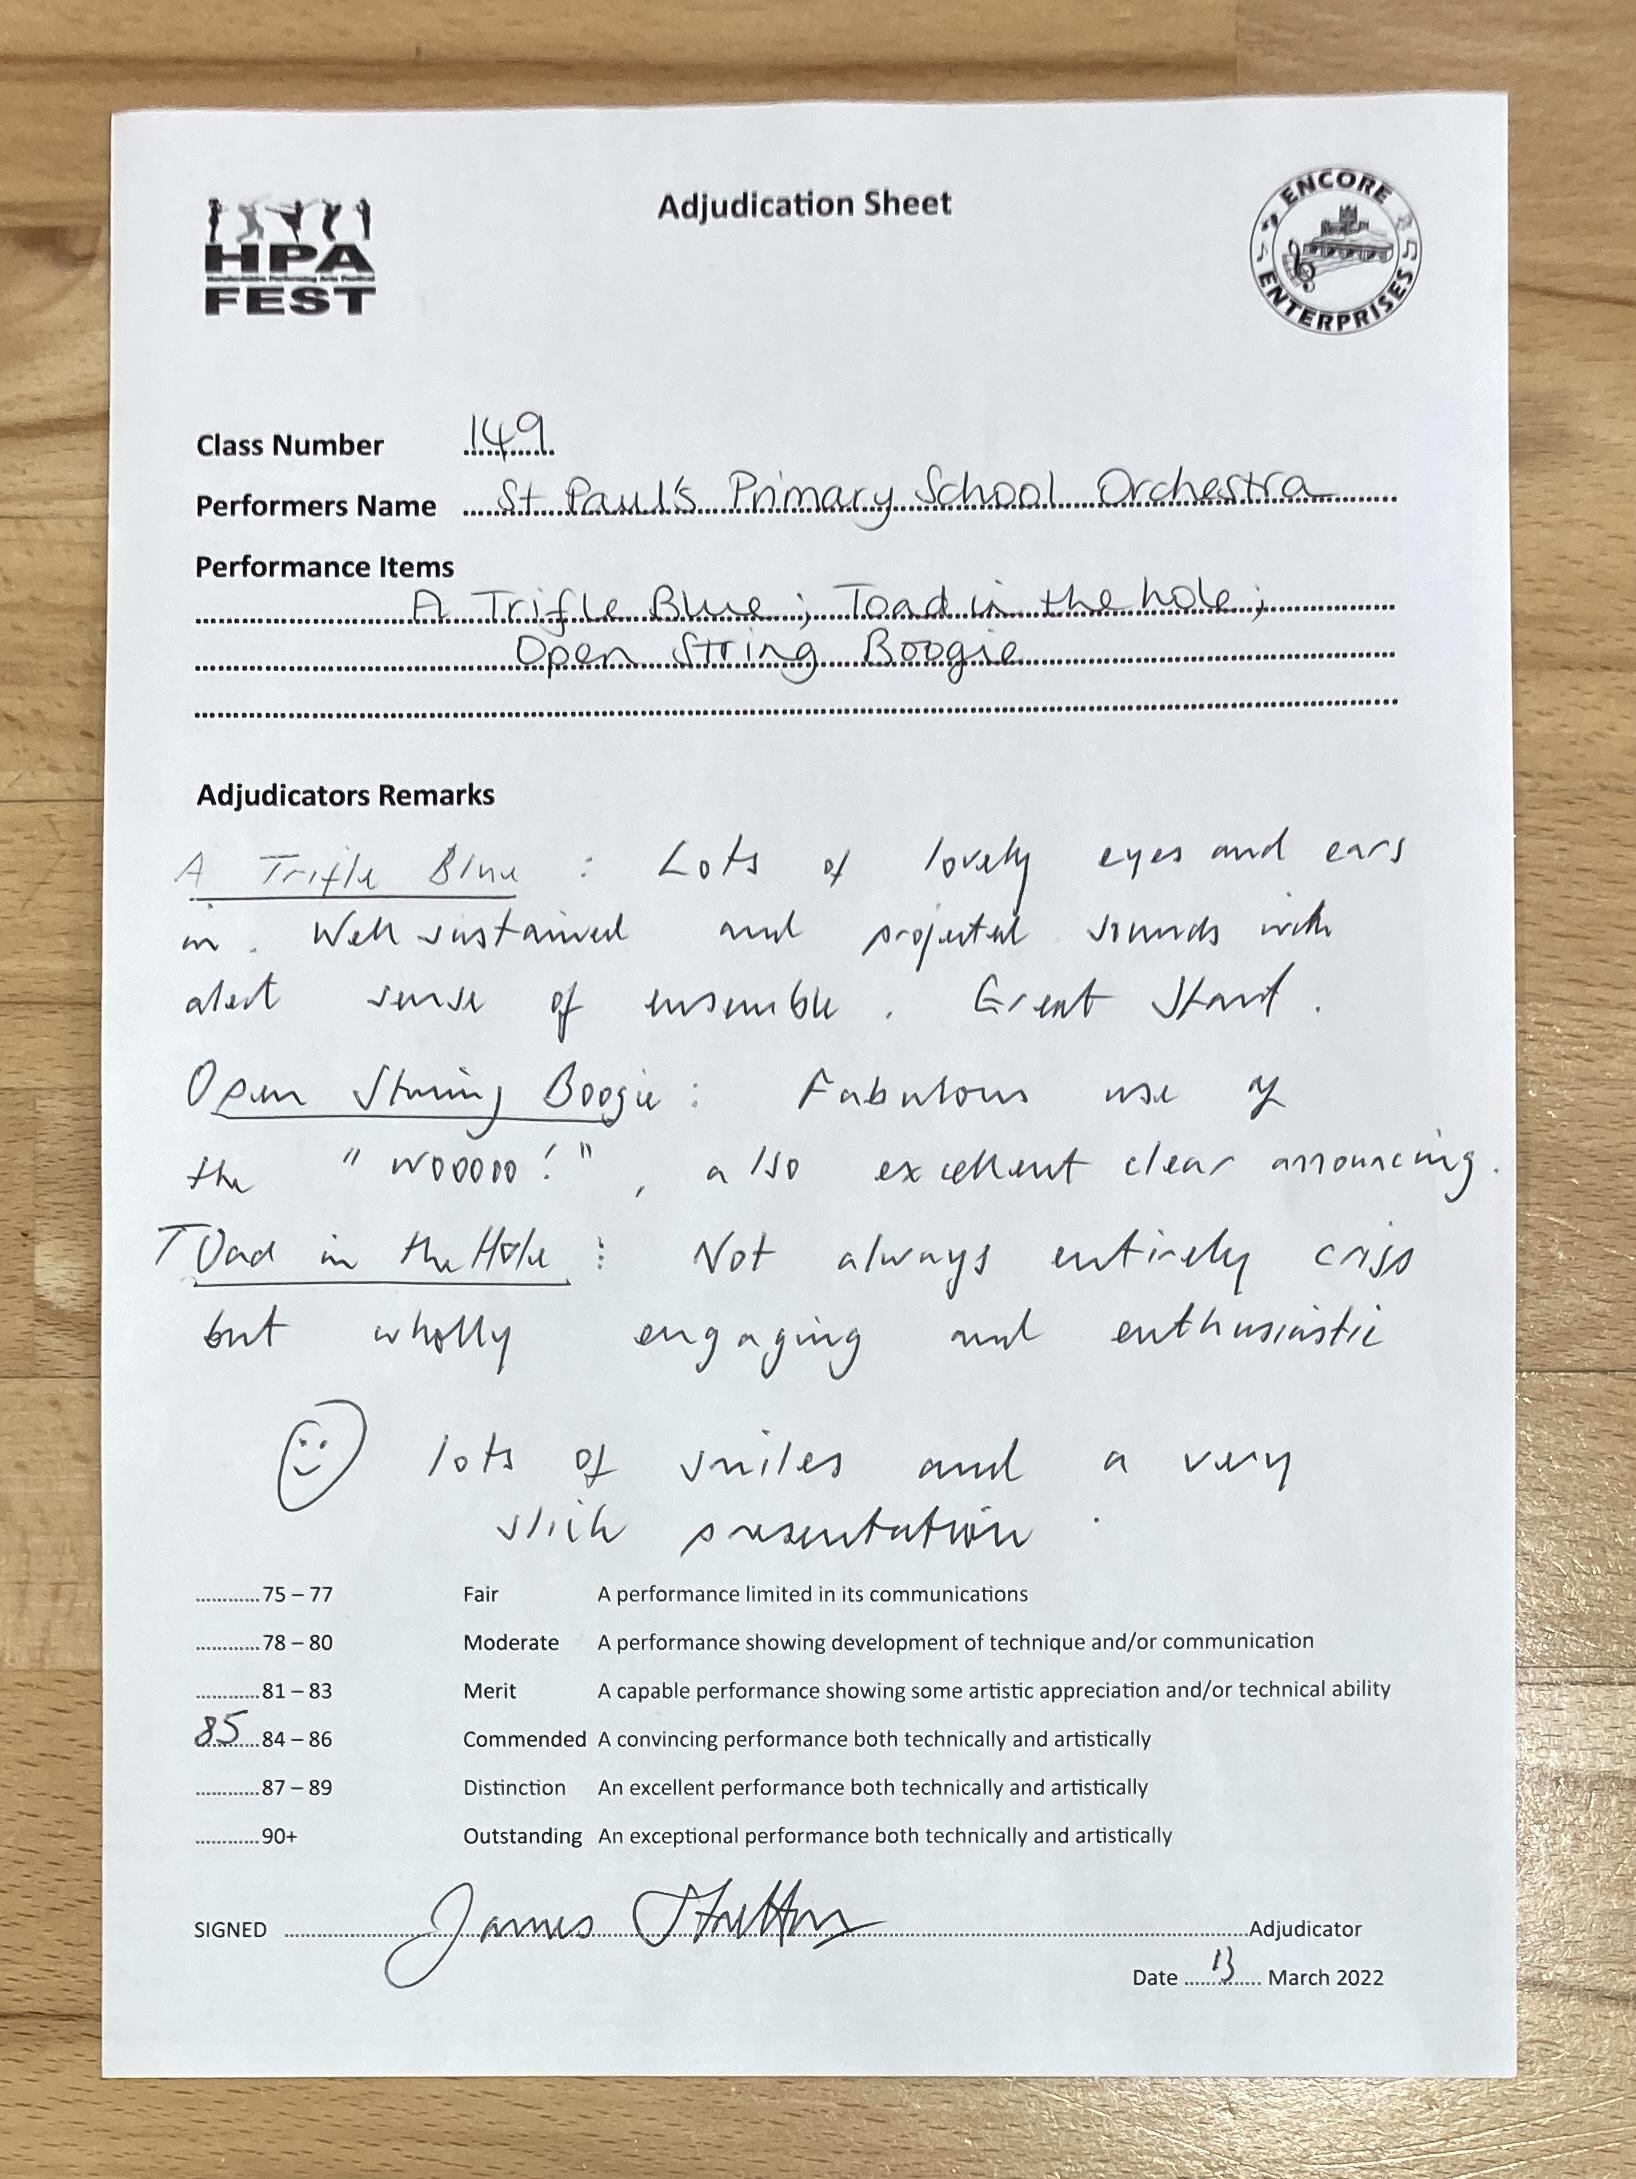 HPA
FEST
Adjudication Sheet
ENCORE
ENTERPRISES
Class Number 149
Performers Name St Paul's Primary School Orchestra
Performance Items
A Trifle Blue; Toad in the hole;
Open String Boogie
Adjudicators Remarks
A Trifle Blue : Lots of lovely eyes and ears
in. Well sustained and projected sounds with
alert sense of ensemble. Great Start.
Open String Boogie: Fabulous use of
the "Wooooo!", also excellent clear announcing.
Toad in the Hole : Not always entirely crisp
but wholly engaging and enthusiastic
lots of smiles and a very
slick presentation.
75 – 77 Fair A performance limited in its communications
78 – 80 Moderate A performance showing development of technique and/or communication
81 – 83 Merit A capable performance showing some artistic appreciation and/or technical ability
85 84 – 86 Commended A convincing performance both technically and artistically
87 – 89 Distinction An excellent performance both technically and artistically
90+ Outstanding An exceptional performance both technically and artistically
SIGNED James Adjudicator
Date 13 March 2022